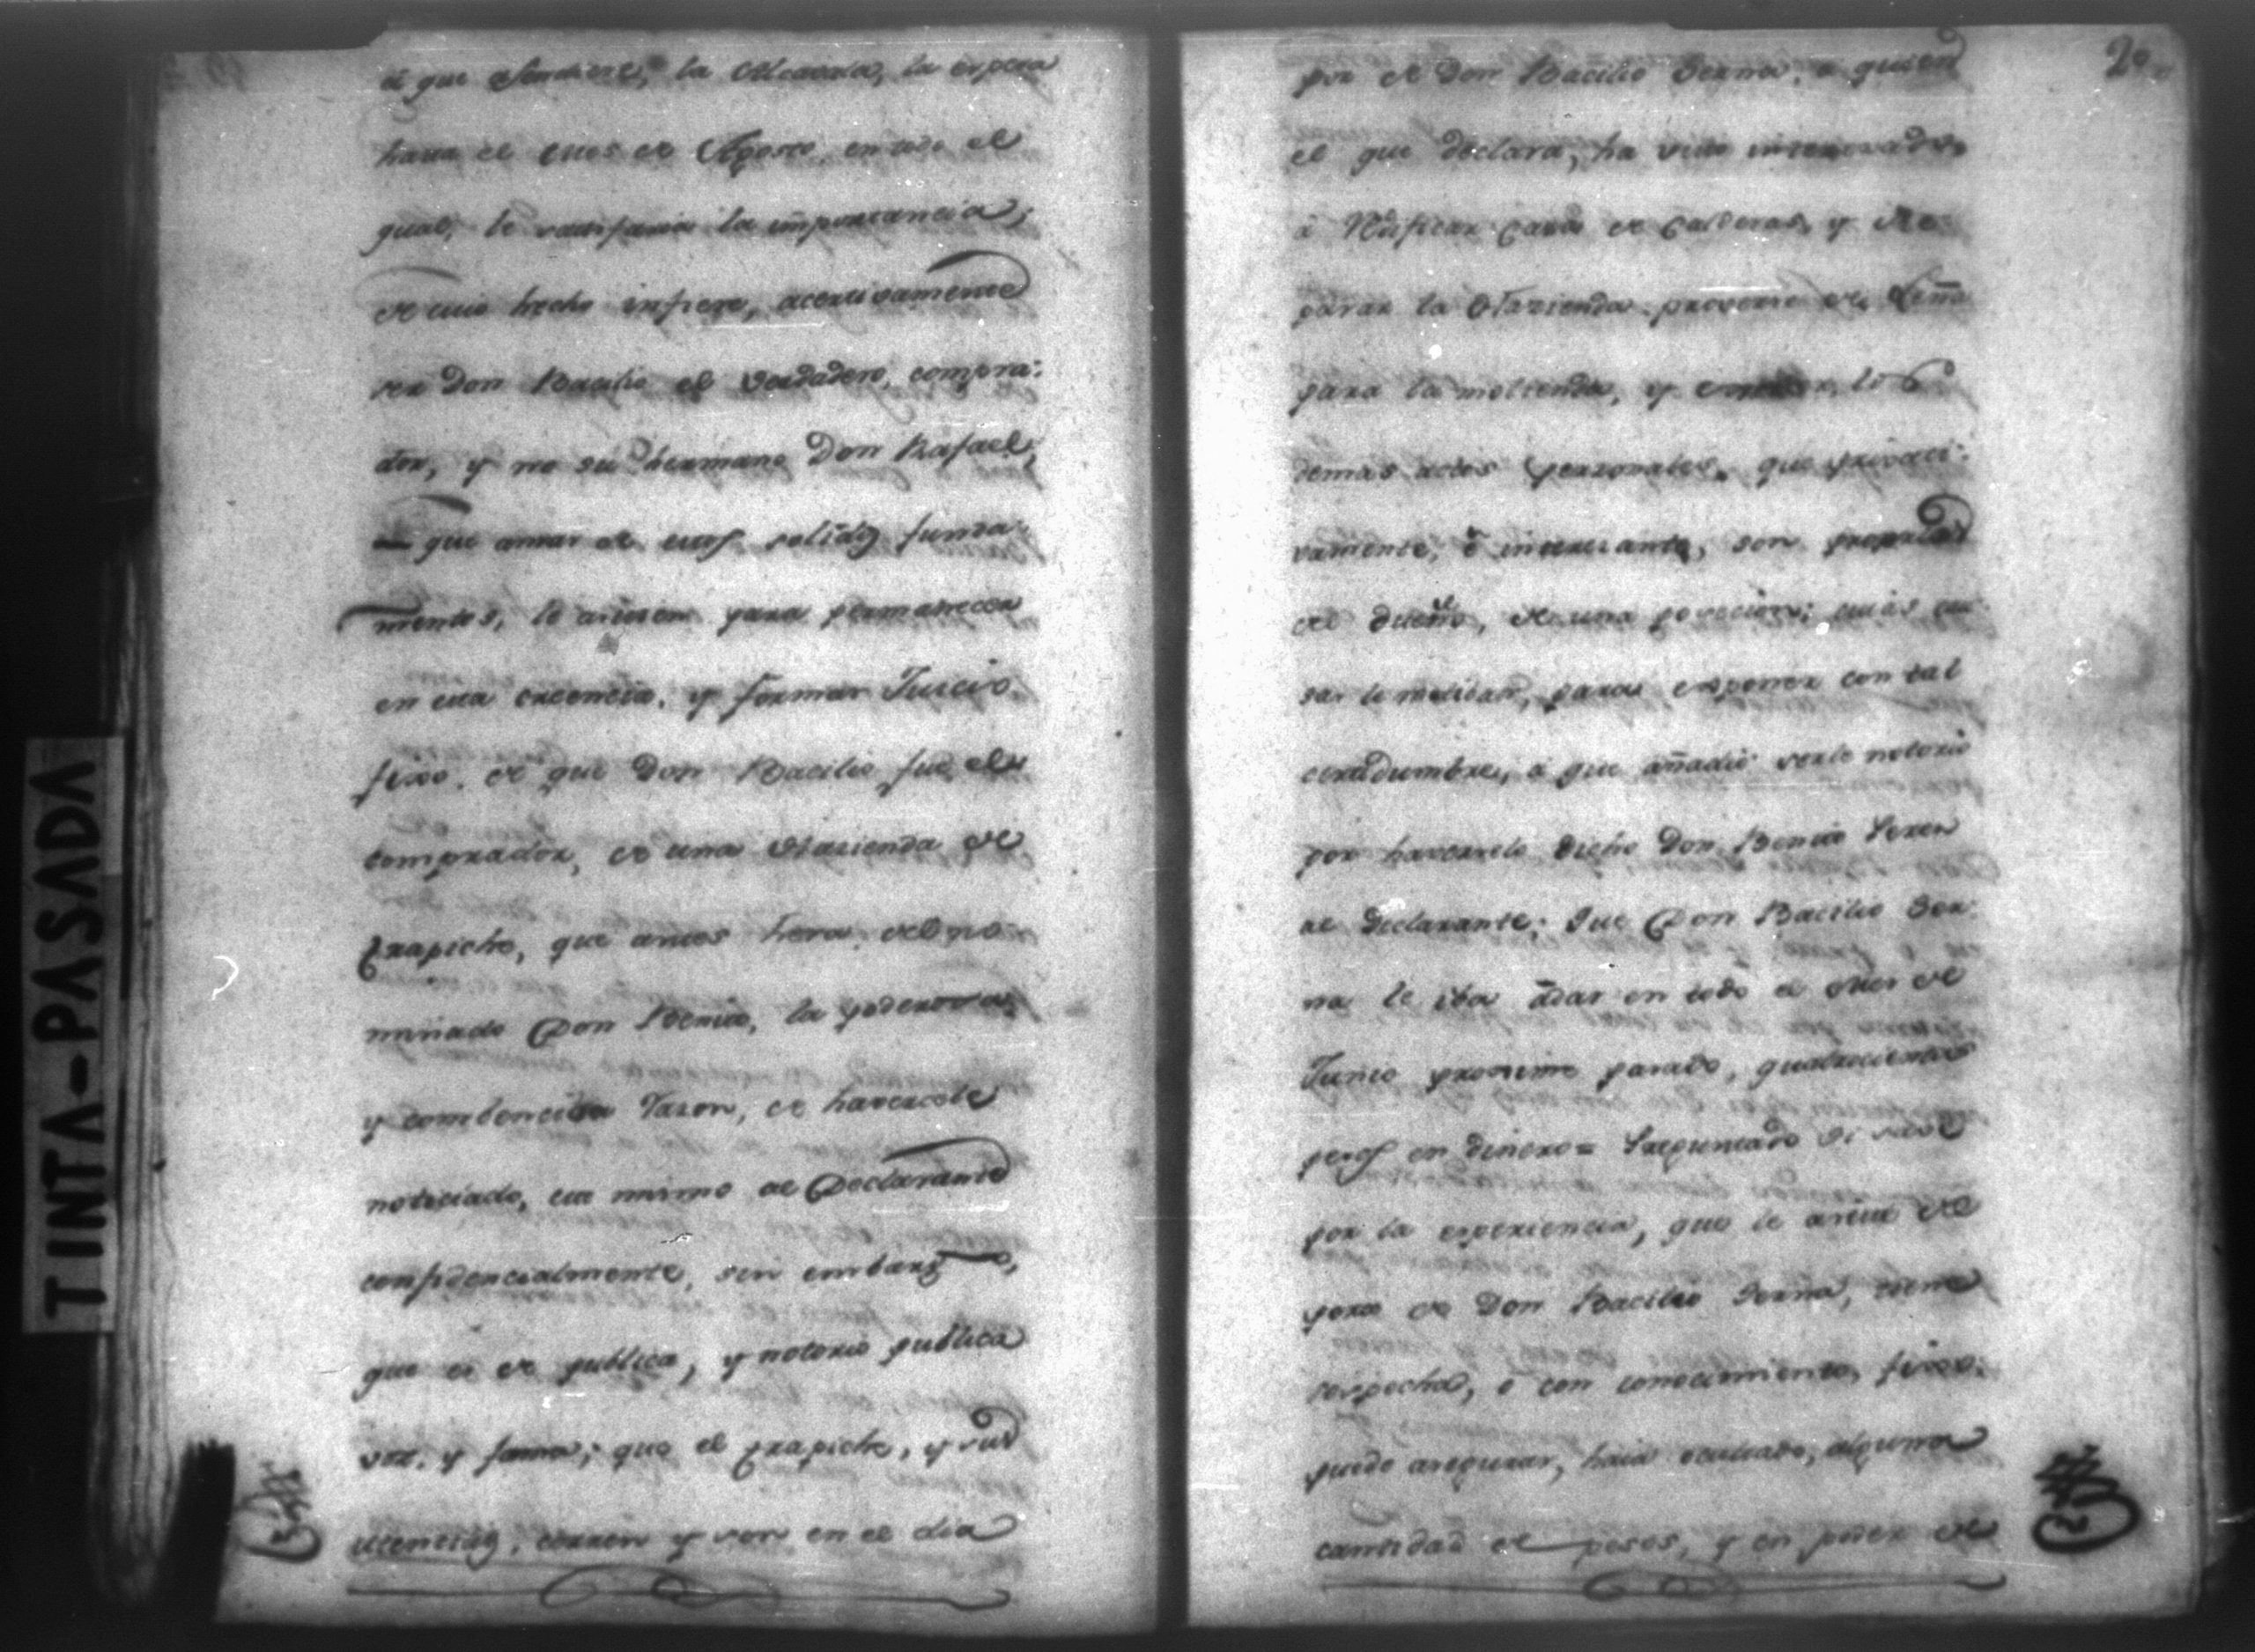 á que asendiere, la Alcavala, la espera
hasta el mes de Agosto, en todo el
qual, le satisfaria la importancia;
de cuio hecho infiere, acertivamente
ser Don Bacilio el verdadero, compra-
dor, y no su hermano Don Rafael;
que amas de estos solidos funda-
mentos, le asisten para permanecer
en esta creencia, y formar Juicio
fixo, de que Don Bacilio fue el
comprador, de una Hazienda de
trapiche, que antes hera, del no-
minado Don Benito, la poderosa,
y combencida razon, de haversele
noticiado, este mismo al Declarante
confidencialmente, sin embargo,
que es de publica, y notorio publica
voz, y fama; que el trapiche, y sus
utencilios, corren y son en el dia
20
por de Don Bacilio Serna, a quien
el que declara, ha visto
á Redificar Casa de Calderas, y Re-
parar la Hazienda proverse de Leña
para la molienda, y los
demas actos personales, que privati-
vamente, é son propios
del dueño, de una posecion; cuias cau-
sas le motiban, para esponer con tal
certidumbre, á que añadio serle notorio
por haverselo dicho Don Benito Perez
al declarante; Que Don Bacilio Ser-
na le iba ádar en todo el mes de
Junio proximo pasado, quatrocientos
pesos en dinero = Preguntado Si sabe
por la esperiencia, que le asiste de
para de Don Bacilio Serna, tiene
sospecha, ó con conocimiento fixo,
puede asegurar, haia ocultado, alguna
cantidad de pesos, y en poder de
TINTA-PASADA